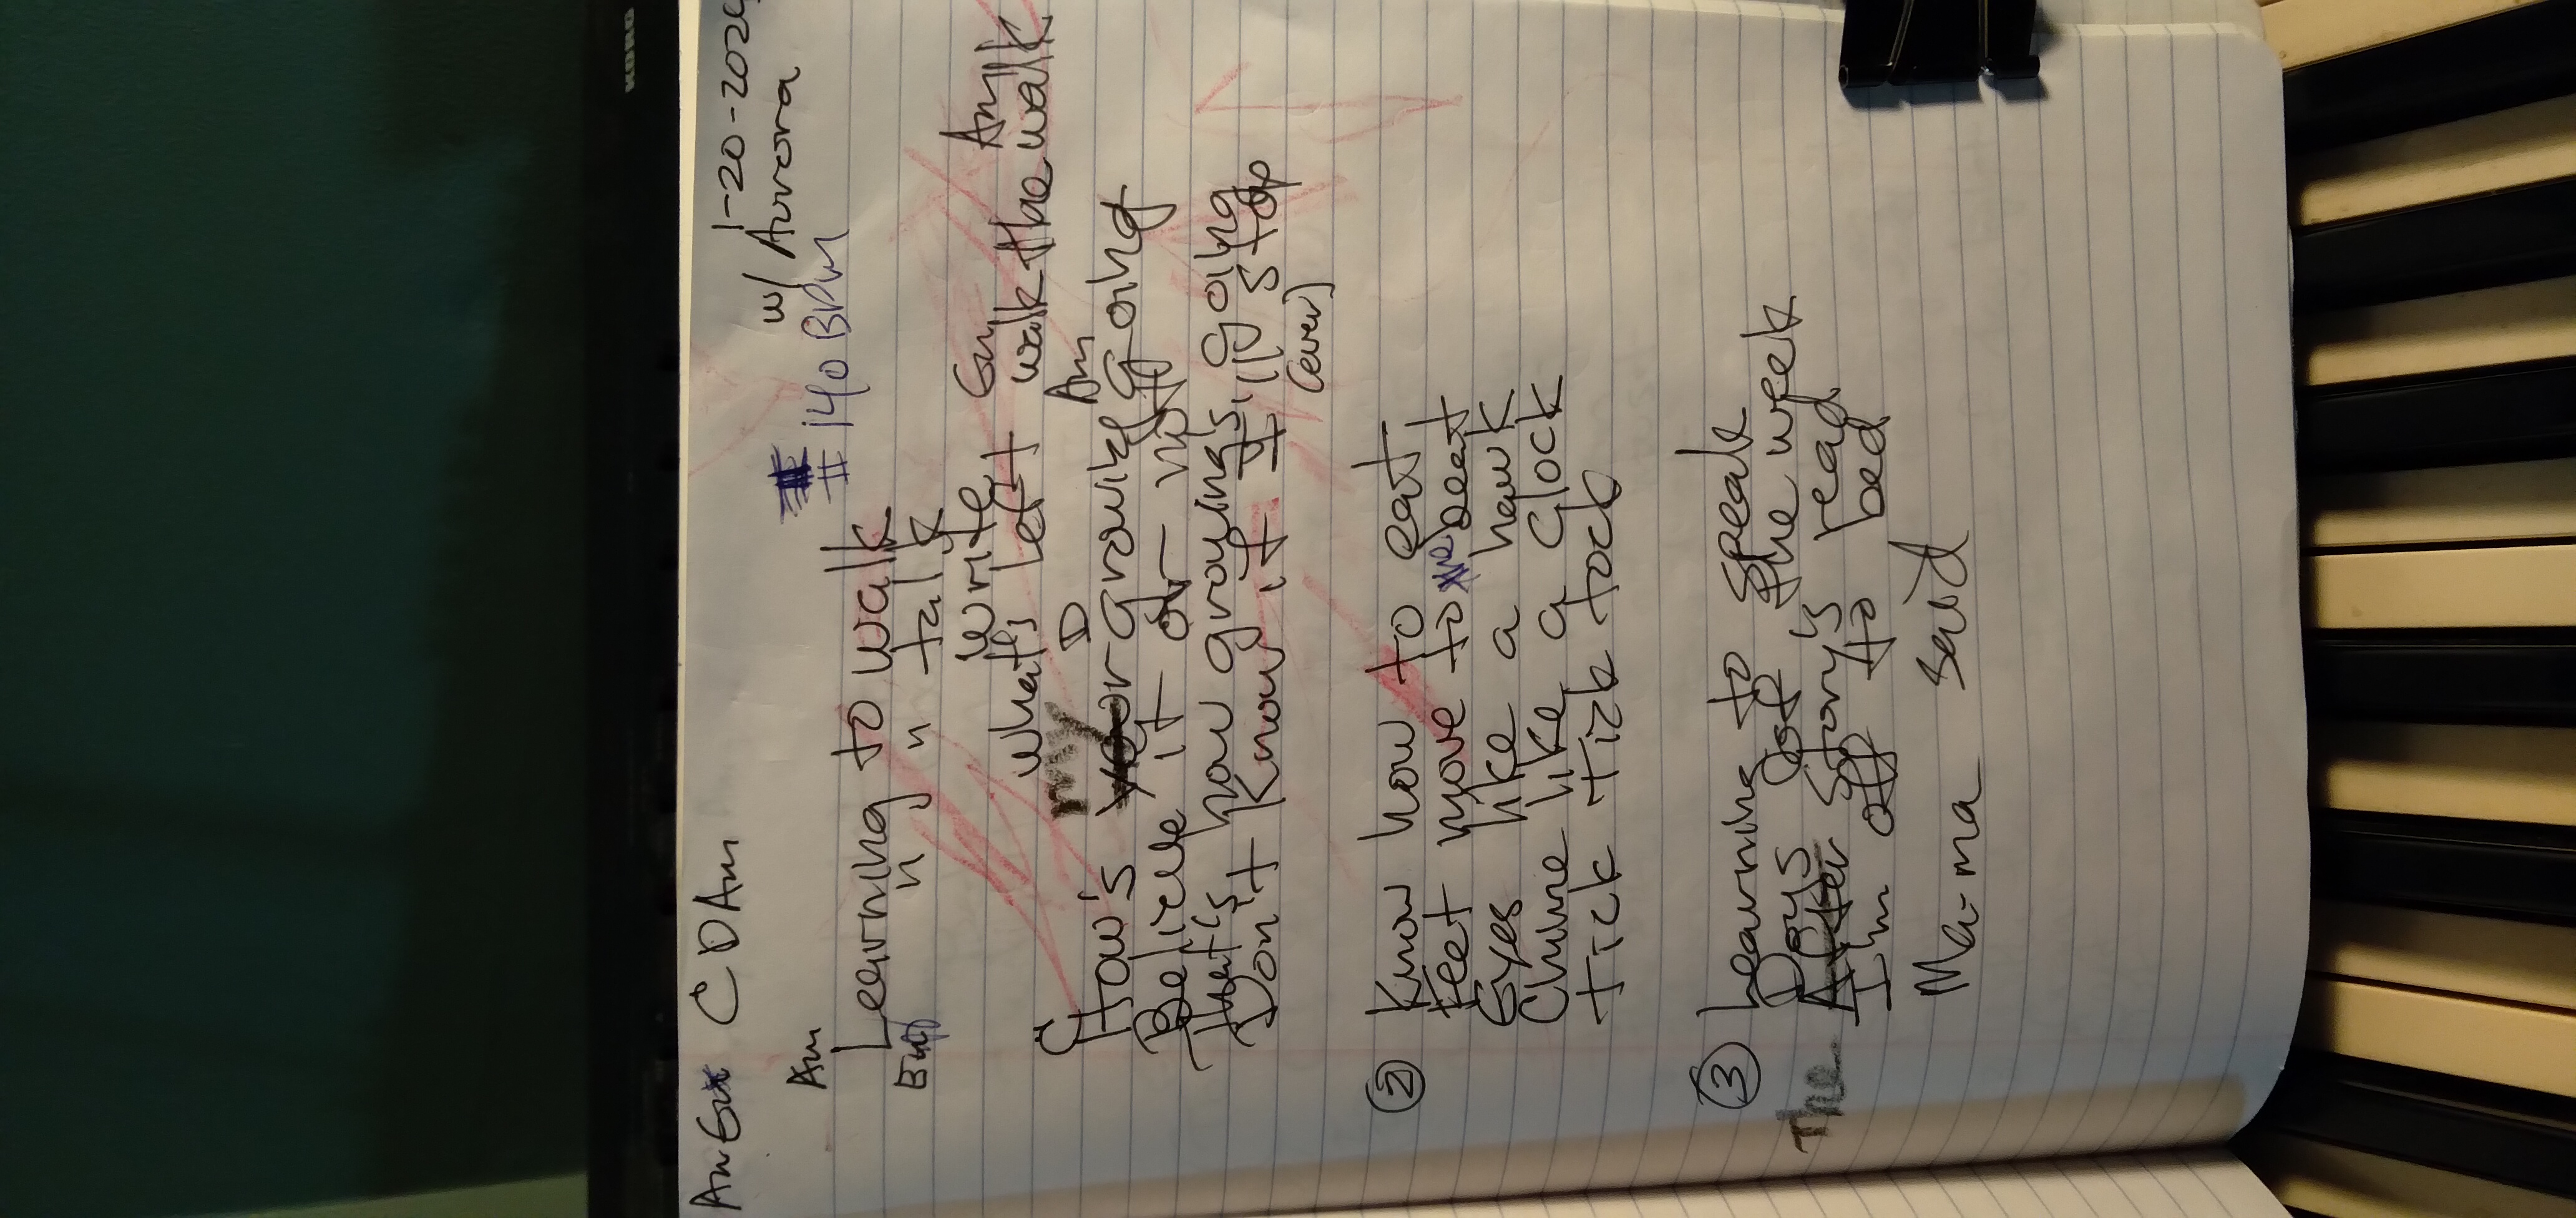 KORG
1-20-202
Am C D Am w/ Aurora
# 140 BPM
Am
Learning to walk
" " talk
write Em Am
what's left walk the walk
C my D Am
How's growing going
Believe it or not
that's how growing's going
Don't know it till it stop
(ever)
② Know how to eat
feet move to the beat
Eyes like a hawk
Chime like a Glock
tick tick tock
③ Learning to speak
Days of the week
The Story's read
I'm off to bed
Ma-ma said